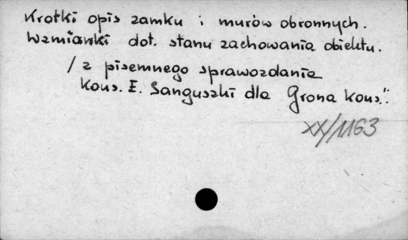 Krotki opis zamku i murów obronnych.
Wzmianki dot. stanu zachowania obiektu.
/ z pisemnego sprawozdania
Kons. E. Sanguszki dla Grona Kons."
XX/1163